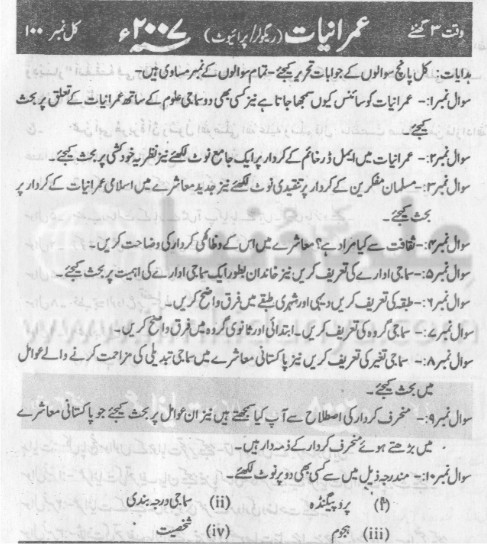 وقت ۳ گھنٹے عمرانیات (ریگولر/پرائیوٹ) سنہ ۲۰۰۷ء کل نمبر ۱۰۰
ہدایات: کل پانچ سوالوں کے جوابات تحریر کیجئے۔ تمام سوالوں کے نمبر مساوی ہیں۔
سوال نمبر۱:- عمرانیات کو سائنس کیوں سمجھا جاتا ہے نیز کسی بھی دو سماجی علوم کے ساتھ عمرانیات کے تعلق پر بحث
کیجئے۔
سوال نمبر۲:- عمرانیات میں ایمل ڈرخائم کے کردار پر ایک جامع نوٹ لکھئے نیز نظریہ خودکشی پر بحث کیجئے۔
سوال نمبر۳:- مسلمان مفکرین کے کردار پر تنقیدی نوٹ لکھئے نیز جدید معاشرے میں اسلامی عمرانیات کے کردار پر
بحث کیجئے۔
سوال نمبر۴:- ثقافت سے کیا مراد ہے؟ معاشرے میں اس کے وظائفی کردار کی وضاحت کریں۔
سوال نمبر۵:- سماجی ادارے کی تعریف کریں نیز خاندان بطور ایک سماجی ادارے کی اہمیت پر بحث کیجئے۔
سوال نمبر۶:- طبقہ کی تعریف کریں دیہی اور شہری طبقے میں فرق واضح کریں۔
سوال نمبر۷:- سماجی گروہ کی تعریف کریں۔ ابتدائی اور ثانوی گروہ میں فرق واضح کریں۔
سوال نمبر۸:- سماجی تغیر کی تعریف کریں نیز پاکستانی معاشرے میں سماجی تبدیلی کی مزاحمت کرنے والے عوامل
میں بحث کیجئے۔
سوال نمبر۹:- منحرف کردار کی اصطلاح سے آپ کیا سمجھتے ہیں نیز ان عوامل پر بحث کیجئے جو پاکستانی معاشرے
میں بڑھتے ہوئے منحرف کردار کے ذمہ دار ہیں۔
سوال نمبر۱۰:- مندرجہ ذیل میں سے کسی بھی دو پر نوٹ لکھئے۔
(i) پروپیگنڈہ (ii) سماجی درجہ بندی
(iii) ہجوم (iv) شخصیت